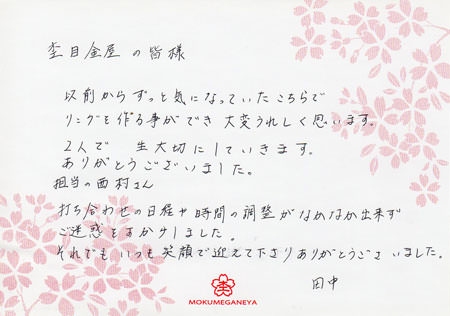 杢目金屋 の皆様
以前からずっと気になっていたこちらで
リングを作る事ができ 大変うれしく思います。
2人で 一生大切にしていきます。
ありがとうございました。
担当の西村さん
打ち合わせの日程や時間の調整がなかなか出来ず
ご迷惑をおかけしました。
それでもいつも笑顔で迎えて下さりありがとうございました。
田中
杢
MOKUMEGANEYA